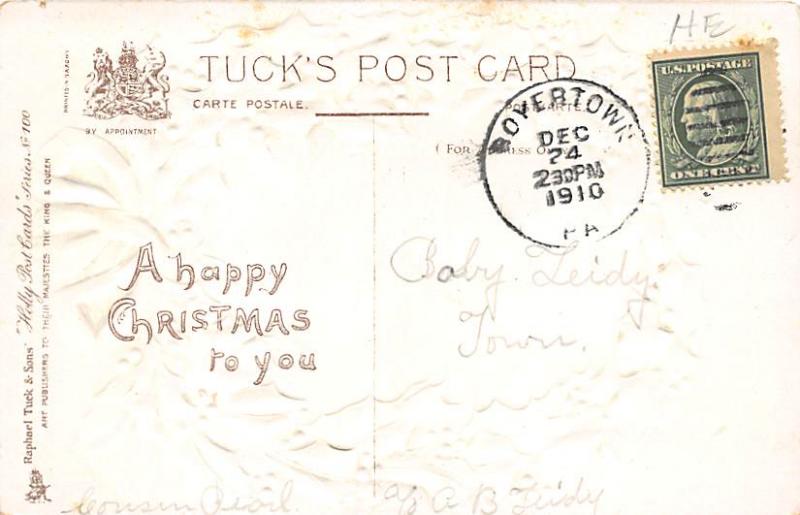 HE
TUCK'S POST CARD
CARTE POSTALE.
POSTKARTE.
(FOR ADDRESS ONLY)
BY APPOINTMENT
PRINTED IN SAXONY
U.S. POSTAGE
ONE CENT
BOYERTOWN
DEC
24
230PM
1910
PA
Raphael Tuck & Sons' "Holly Post Cards" Series No 100
ART PUBLISHERS TO THEIR MAJESTIES THE KING & QUEEN
A happy
CHRISTMAS
to you
Baby Leidy.
Town.
Cousin Pearl.
c/o A B Leidy